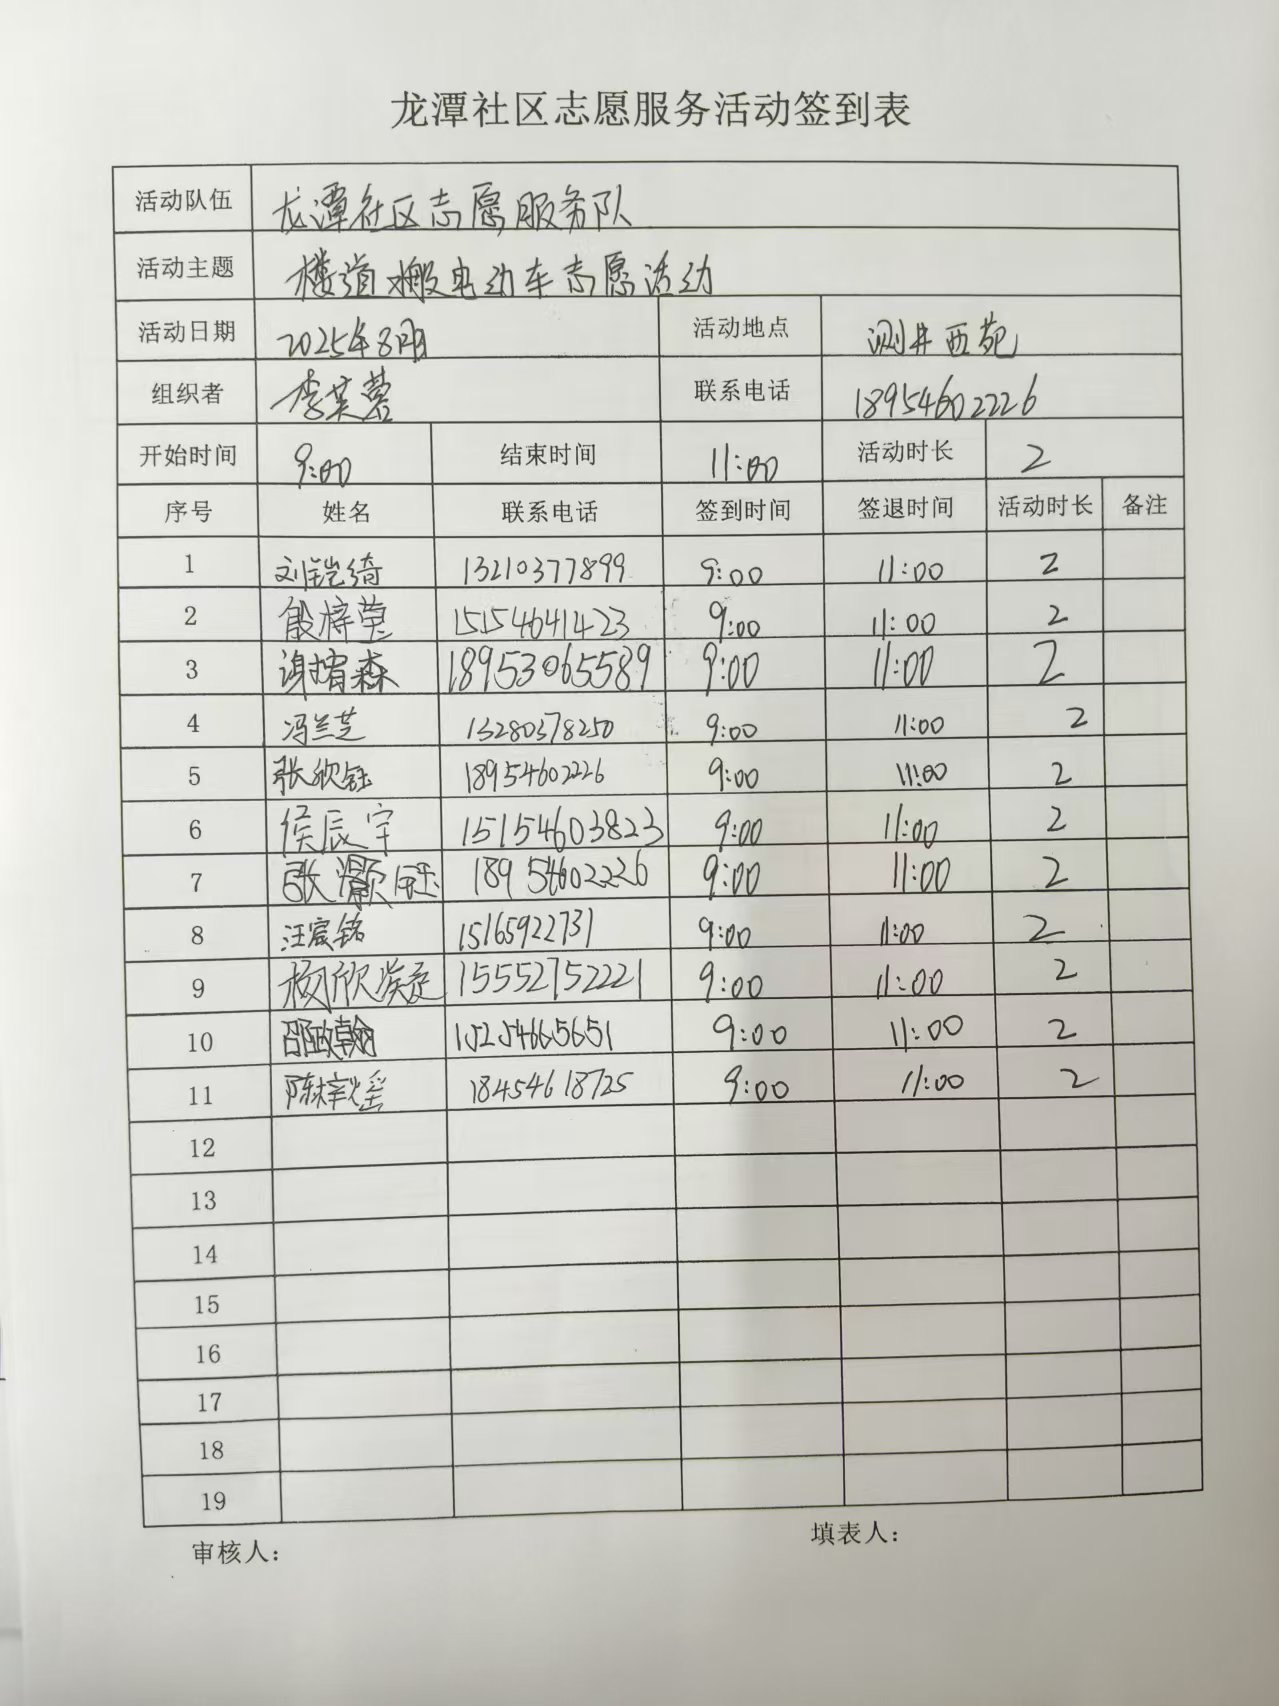 龙潭社区志愿服务活动签到表
活动队伍 龙潭社区志愿服务队
活动主题 楼道搬电动车志愿活动
活动日期 2025年8月 活动地点 测井西苑
组织者 李芙蓉 联系电话 18954602226
开始时间 9:00 结束时间 11:00 活动时长 2
序号 姓名 联系电话 签到时间 签退时间 活动时长 备注
1 刘铠绮 13210377899 9:00 11:00 2
2 殷梓莹 15154641423 9:00 11:00 2
3 谢堉森 18953065589 9:00 11:00 2
4 冯兰芝 13280378250 9:00 11:00 2
5 张欣钰 18954602226 9:00 11:00 2
6 侯辰宇 15154603823 9:00 11:00 2
7 张灏钰 18954602226 9:00 11:00 2
8 汪宸铭 15165922731 9:00 11:00 2
9 杨欣 15552752221 9:00 11:00 2
10 邵政翰 15254665651 9:00 11:00 2
11 陈梓瑶 18454618725 9:00 11:00 2
12
13
14
15
16
17
18
19
审核人： 填表人：